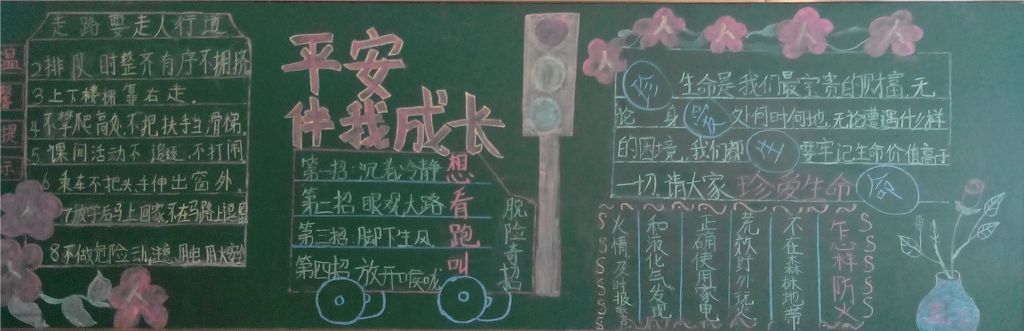 温馨提示
走路要走人行道
2排队时整齐有序不拥挤
3上下楼梯靠右走.
4不攀爬高处不把扶手当滑梯.
5.课间活动不追逐,不打闹
6.乘车不把头手伸出窗外.
7放学后马上回家不在马路上逗留
8不做危险动
平安
伴我成长
第一招:沉着冷静想
第二招 眼观大路看
第三招 脚下生风跑
第四招 放开口喉咙叫
脱险奇招
生命是我们最宝贵的财富,无
论 身 处何时何地,无论遭遇什么样
的困境,我们都 要牢记生命价值高于
一切.请大家 珍爱生命
怎样防火
不在森林地带
荒秋野外玩火
正确使用家电
和液化气发现
火情及时报警